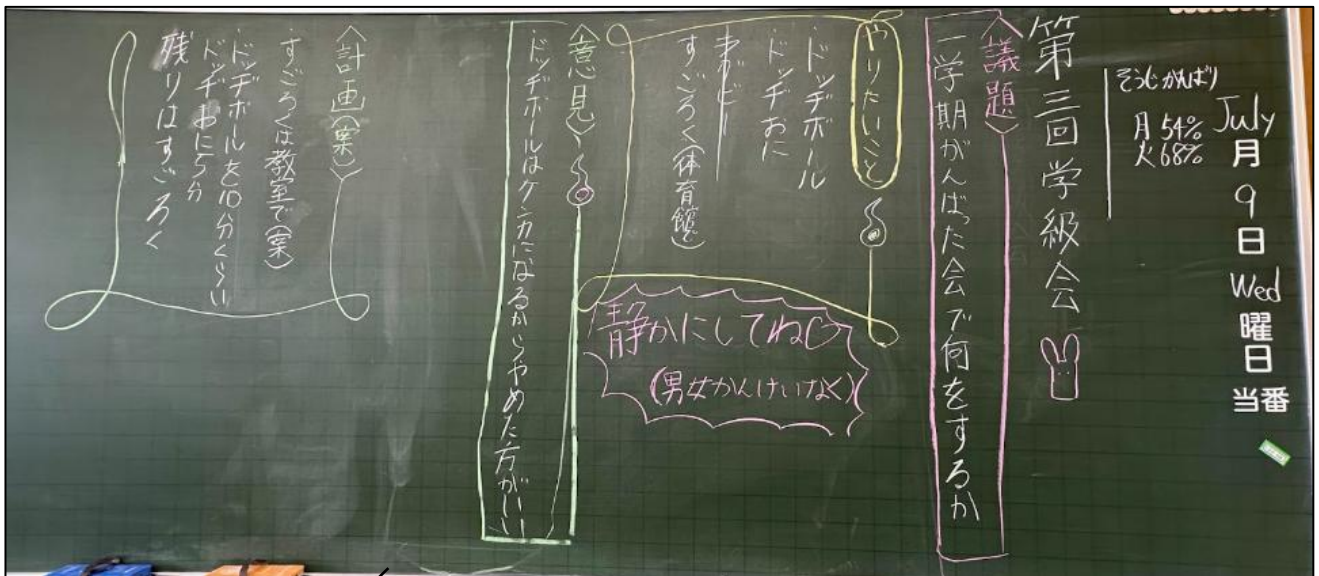 July月9日Wed曜日当番
そうじがんばり
月54%
火68%
第三回学級会
〈議題〉
一学期がんばった会で何をするか
やりたいこと
・ドッヂボール
・ドッヂおに
・わざピー
すごろく(体育館で)
静かにしてね
(男女かんけいなく)
〈意見〉
・ドッヂボールはケンカになるからやめた方がいい
〈計画(案)〉
・すごろくは教室で(案)
・ドッヂボールを10分くらい
ドッヂおに5分
残りはすごろく